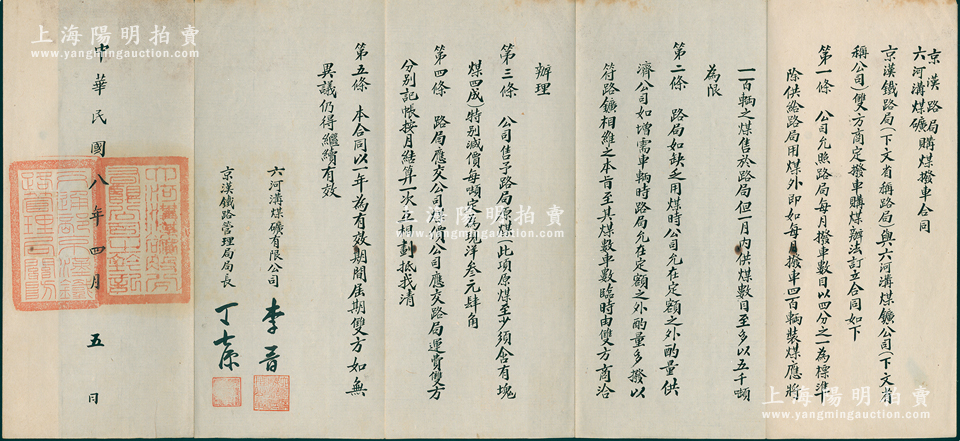 京漢路局
六河溝煤礦購煤撥車合同
京漢鐵路局（下文省稱路局）與六河溝煤鑛公司（下文省
稱公司）雙方商定撥車購煤辦法訂立合同如下
第一條 公司允照路局每月撥車數目以四分之一為標準
除供給路局用煤外即如每月撥車四百輛裝煤應將
一百輛之煤售於路局但一月內供煤數目至多以五千噸
為限
第二條 路局如缺乏用煤時公司允在定額之外酌量供
濟公司如增需車輛時路局允在定額之外酌量多撥以
符路鑛相維之本旨至其煤數車數臨時由雙方商洽
辦理
第三條 公司售予路局原煤（此項原煤至少須含有塊
煤四成）特別減價每噸定為現洋叁元肆角
第四條 路局應交公司煤價公司應交路局運費雙方
分別記帳按月結算一次互相劃抵找清
第五條 本合同以一年為有效期間屆期雙方如無
異議仍得繼續有效
六河溝煤礦有限公司 李晋
京漢鐵路管理局局長 丁士源
中華民國八年四月五日
上海陽明拍賣
www.yangmingauction.com
上海陽明拍賣
www.yangmingauction.com
上海陽明拍賣
www.yangmingauction.com